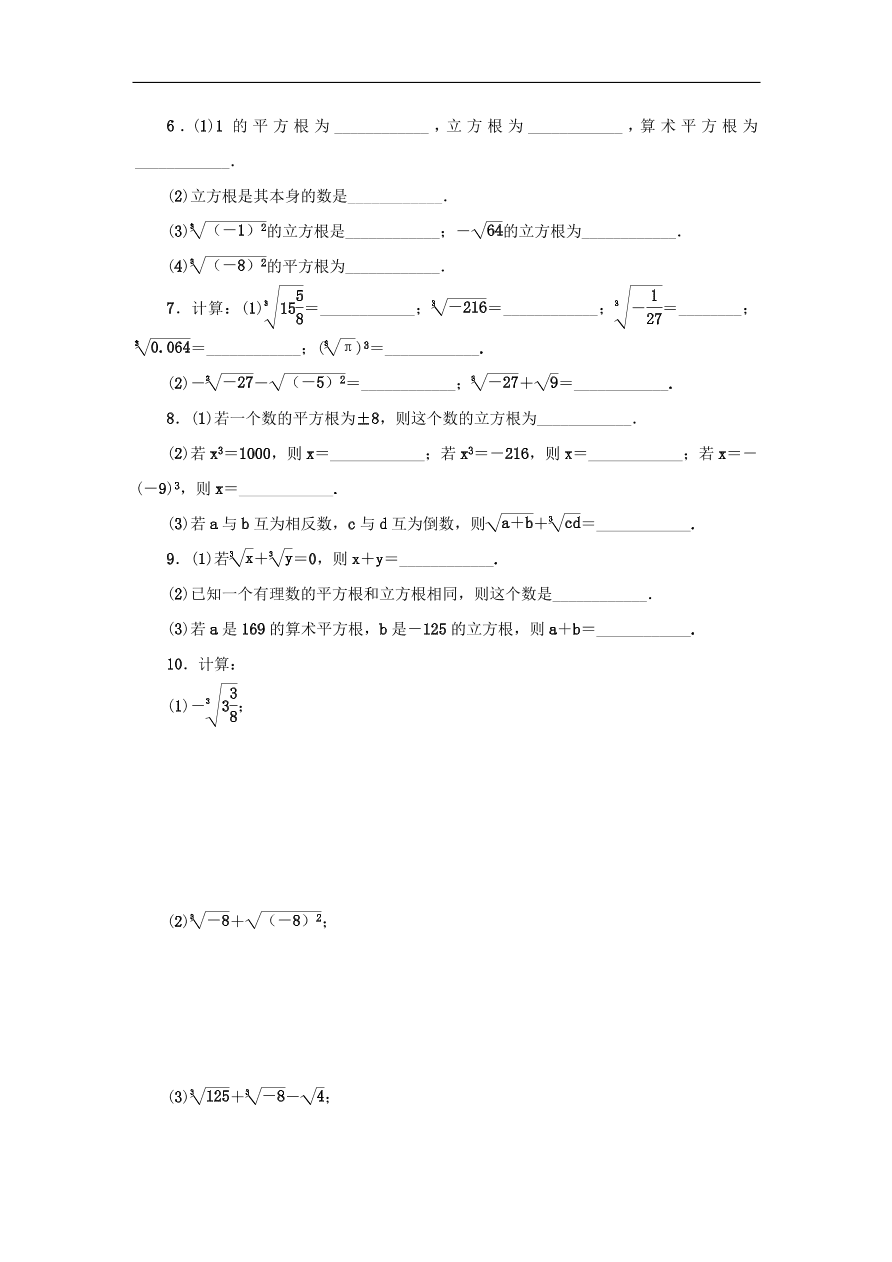 6．(1)1 的平方根为____________，立方根为____________，算术平方根为
____________．
(2)立方根是其本身的数是____________．
(3)∛(－1)²的立方根是____________；－√64的立方根为____________．
(4)∛(－8)²的平方根为____________．
7．计算：(1)∛(15 5/8)＝____________；∛－216＝____________；∛(－1/27)＝________；
∛0.064＝____________；(∛π)³＝____________.
(2)－∛－27－√(－5)²＝____________；∛－27＋√9＝____________.
8．(1)若一个数的平方根为±8，则这个数的立方根为____________．
(2)若 x³＝1000，则 x＝____________；若 x³＝－216，则 x＝____________；若 x＝－
(－9)³，则 x＝____________.
(3)若 a 与 b 互为相反数，c 与 d 互为倒数，则√a＋b＋∛cd＝____________.
9．(1)若∛x＋∛y＝0，则 x＋y＝____________.
(2)已知一个有理数的平方根和立方根相同，则这个数是____________．
(3)若 a 是 169 的算术平方根，b 是－125 的立方根，则 a＋b＝____________.
10．计算：
(1)－∛(3 3/8)；
(2)∛－8＋√(－8)²；
(3)∛125＋∛－8－√4；